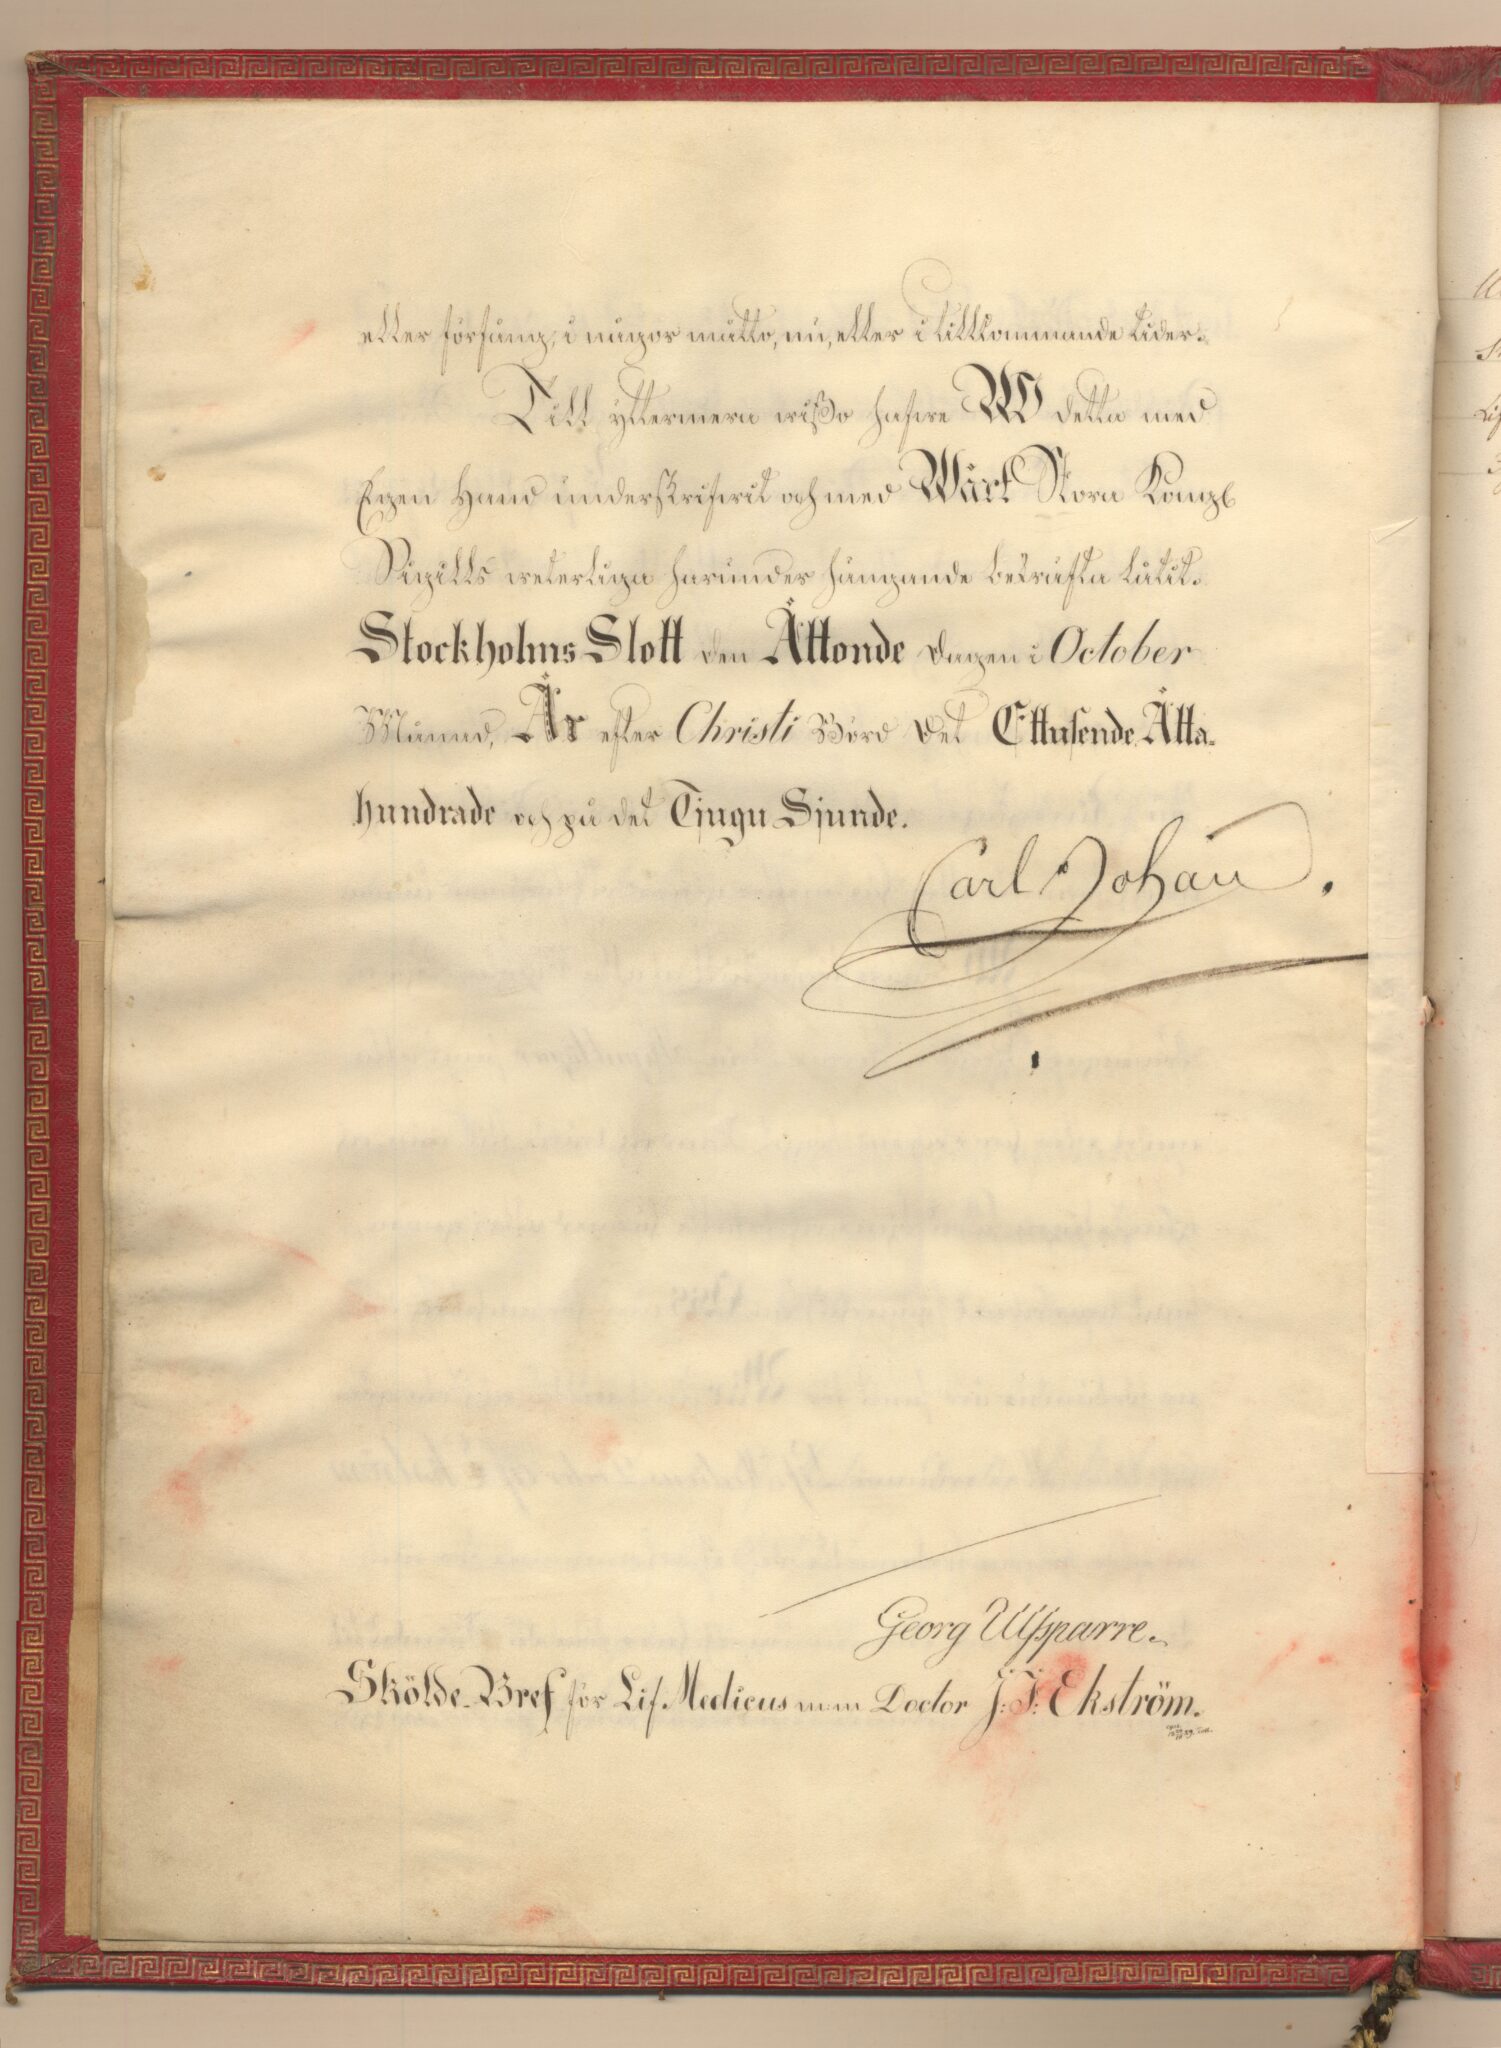 eller förfång, i någor måtto, nu, eller i tillkommande tider.
Till yttermera wißo hafwe Wi detta med
Egen Hand underskrifwit och med Wårt Stora Kongl
Sigills weterliga härunder hängande bekräfta låtit.
Stockholms Slott den Åttonde dagen i October
Månad, År efter Christi Börd det Ettusende Åtta-
hundrade och på det Tjugu Sjunde.
Carl Johan.
Georg Ulfsparre.
Sköldе-Bref för Lif Medicus m m Doctor J: F: Ekström.